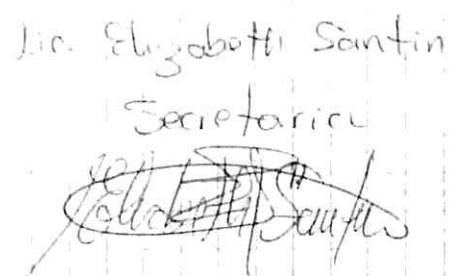 Lic. Elizabeth Santin
Secretaria
Elizabeth Santin